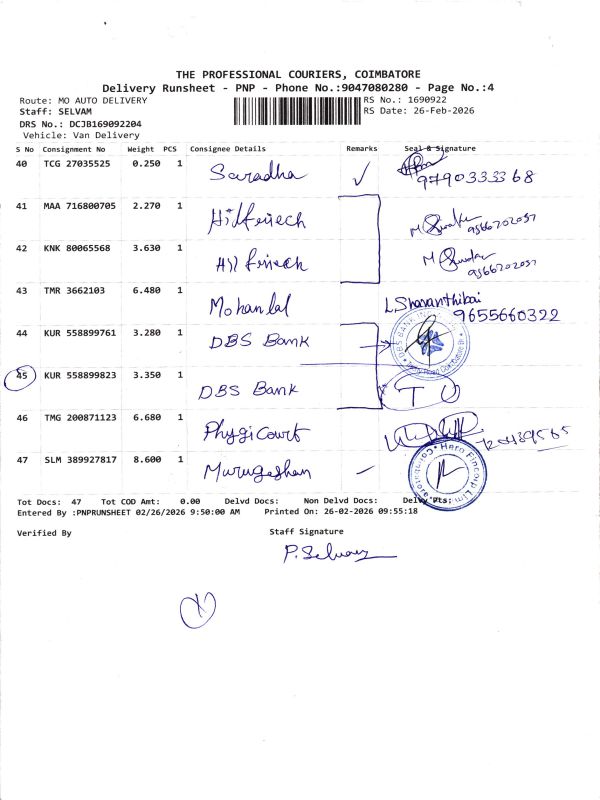 THE PROFESSIONAL COURIERS, COIMBATORE
Delivery Runsheet - PNP - Phone No.:9047080280 - Page No.:4
Route: MO AUTO DELIVERY
RS No.: 1690922
Staff: SELVAM
RS Date: 26-Feb-2026
DRS No.: DCJB169092204
Vehicle: Van Delivery
S No Consignment No Weight PCS Consignee Details Remarks Seal & Signature
40 TCG 27035525 0.250 1 Saradha ✓ 9790333368
41 MAA 716800705 2.270 1 Hilfintech M 9566202037
42 KNK 80065568 3.630 1 Hilfintech M 9566202037
43 TMR 3662103 6.480 1 Mohanlal L Sharanthibai 9655660322
44 KUR 558899761 3.280 1 DBS Bank DBS BANK
45 KUR 558899823 3.350 1 DBS Bank
46 TMG 200871123 6.680 1 Phygicourt
47 SLM 389927817 8.600 1 Murugeshan Hero Fincorp Limited
Tot Docs: 47 Tot COD Amt: 0.00 Delvd Docs: Non Delvd Docs: Delvy Pts:
Entered By :PNPRUNSHEET 02/26/2026 9:50:00 AM Printed On: 26-02-2026 09:55:18
Verified By Staff Signature
P. Selvam